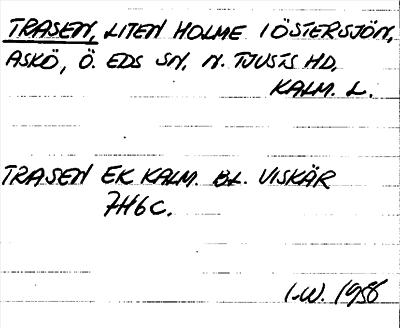 TRASEN, LITEN HOLME I ÖSTERSJÖN,
ASKÖ, Ö. EDS SN, N. TJUSTS HD,
KALM. L.
TRASEN EK KALM. BL. VISKÄR
7H6C.
I.W. 1986